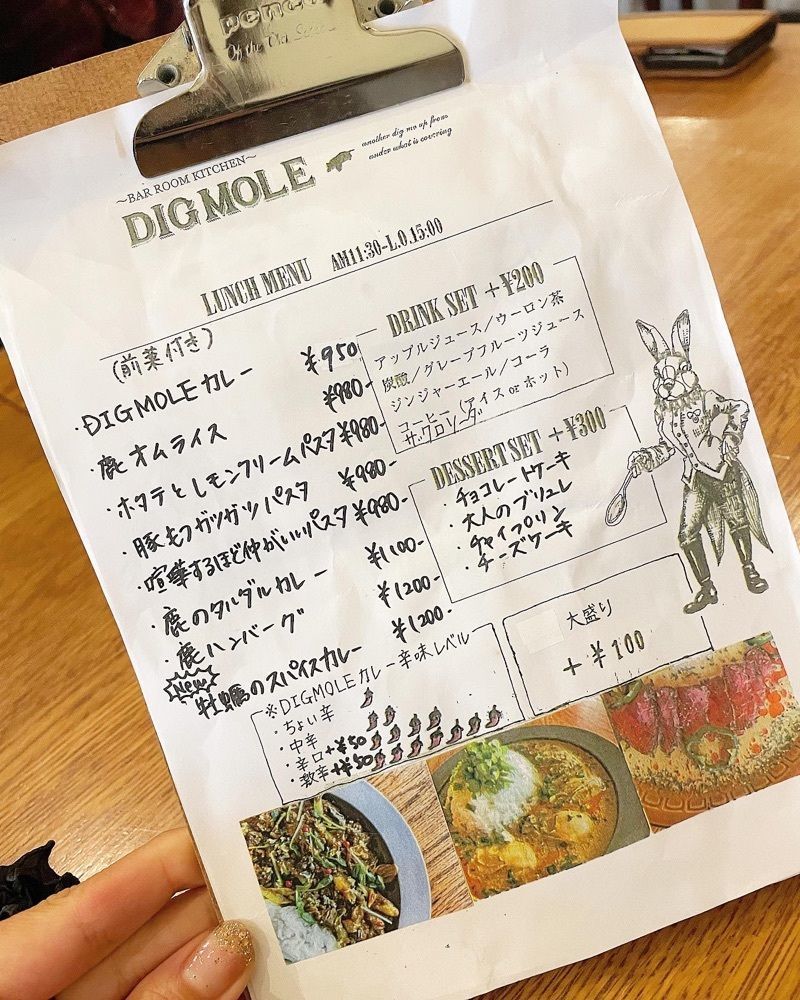 penco
~BAR ROOM KITCHEN~
DIGMOLE
another dig me up from
under what is covering
LUNCH MENU AM11:30-L.O.15:00
(前菜付き)
・DIGMOLEカレー ¥950
・鹿オムライス ¥980-
・ホタテとレモンクリームパスタ ¥980-
・豚もつガツガツパスタ ¥980-
・喧嘩するほど仲がいいパスタ ¥980-
・鹿のタルダルカレー ¥1100-
・鹿ハンバーグ ¥1200-
New 牡蠣のスパイスカレー ¥1200-
DRINK SET +¥200
アップルジュース/ウーロン茶
炭酸/グレープフルーツジュース
ジンジャーエール/コーラ
コーヒー(アイス or ホット)
ザクロソーダ
DESSERT SET +¥300
・チョコレートケーキ
・大人のブリュレ
・チャイプリン
・チーズケーキ
大盛り
+¥100
※DIGMOLEカレー辛味レベル
・ちょい辛
・中辛
・辛口+¥50
・激辛+¥50